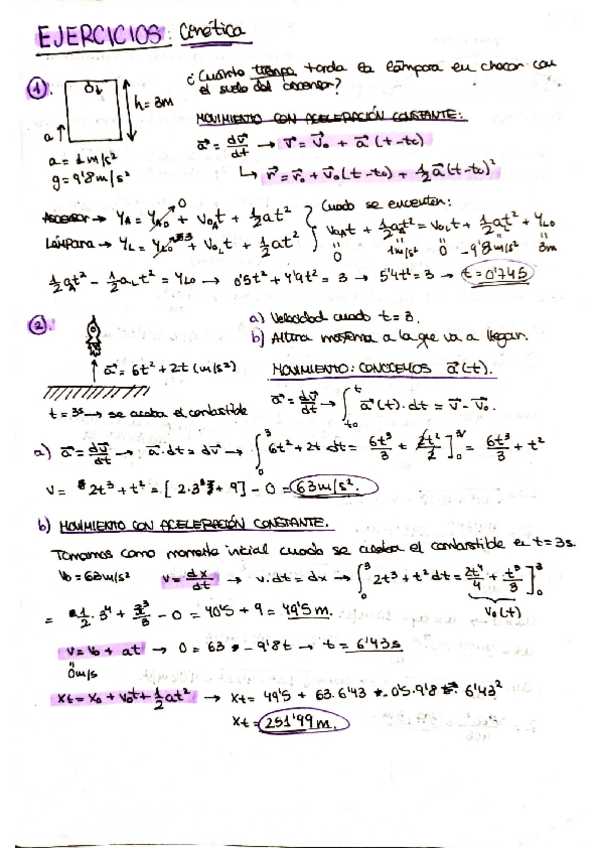 EJERCICIOS: Cinética
1.
h = 3m
a
a = 1 m/s²
g = 9'8 m/s²
¿Cuánto tiempo tarda la lámpara en chocar con
el suelo del ascensor?
MOVIMIENTO CON ACELERACIÓN CONSTANTE:
a⃗ = dv⃗/dt → v⃗ = v⃗₀ + a⃗ (t-t₀)
↳ r⃗ = r⃗₀ + v⃗₀(t-t₀) + ½ a⃗(t-t₀)²
Ascensor → Y_A = Y_A₀ + V₀_A t + ½ at²
Lámpara → Y_L = Y_L₀ + V₀_L t + ½ at²
Cuando se encuentren:
V₀_A t + ½ at² = V₀_L t + ½ at² + Y_L₀
0 1m/s² 0 -9'8 m/s² 3m
½ a_A t² - ½ a_L t² = Y_L₀ → 0'5t² + 4'9t² = 3 → 5'4t² = 3 → t = 0'74S
2.
a⃗ = 6t² + 2t (m/s²)
t = 3s → se acaba el combustible
a) Velocidad cuando t = 3.
b) Altura máxima a la que va a llegar.
MOVIMIENTO: CONOCEMOS a⃗(t).
a⃗ = dv⃗/dt → ∫_t₀^t a⃗(t)·dt = v⃗ - v⃗₀.
a) a⃗ = dv⃗/dt → a⃗·dt = dv⃗ → ∫₀³ 6t² + 2t dt = 6t³/3 + 2t²/2 ]₀³ = 6t³/3 + t²
v = 2t³ + t² = [2·3³ + 9] - 0 = 63 m/s².
b) MOVIMIENTO CON ACELERACIÓN CONSTANTE.
Tomamos como momento inicial cuando se acaba el combustible en t = 3s
V₀ = 63 m/s² v = dx/dt → v·dt = dx → ∫₀³ 2t³ + t² dt = 2t⁴/4 + t³/3 ]₀³
V₀(t)
= ½·3⁴ + 3³/3 - 0 = 40'5 + 9 = 49'5 m.
v = v₀ + at → 0 = 63 - 9'8t → t = 6'43s
0m/s
Xt = X₀ + V₀t + ½ at² → Xt = 49'5 + 63·6'43 - 0'5·9'8·6'43²
Xt = 251'99 m.